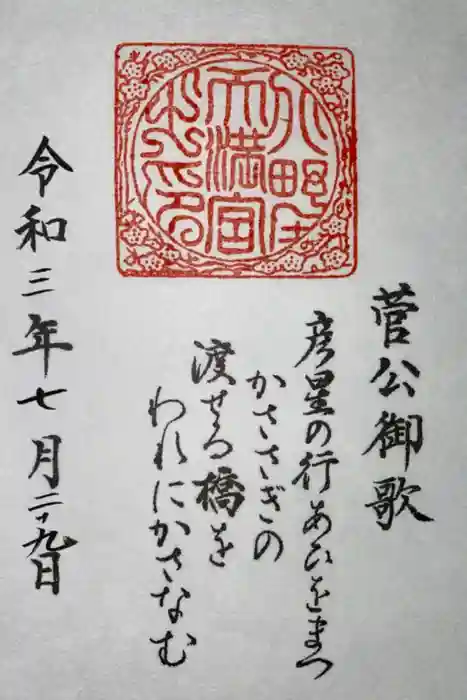 北野
天満宮
之印
菅公御歌
彦星の行あひをまつ
かささぎの
渡せる橋を
われにかさなむ
令和三年七月二十九日